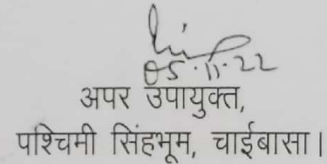 05.11.22
अपर उपायुक्त,
पश्चिमी सिंहभूम, चाईबासा।